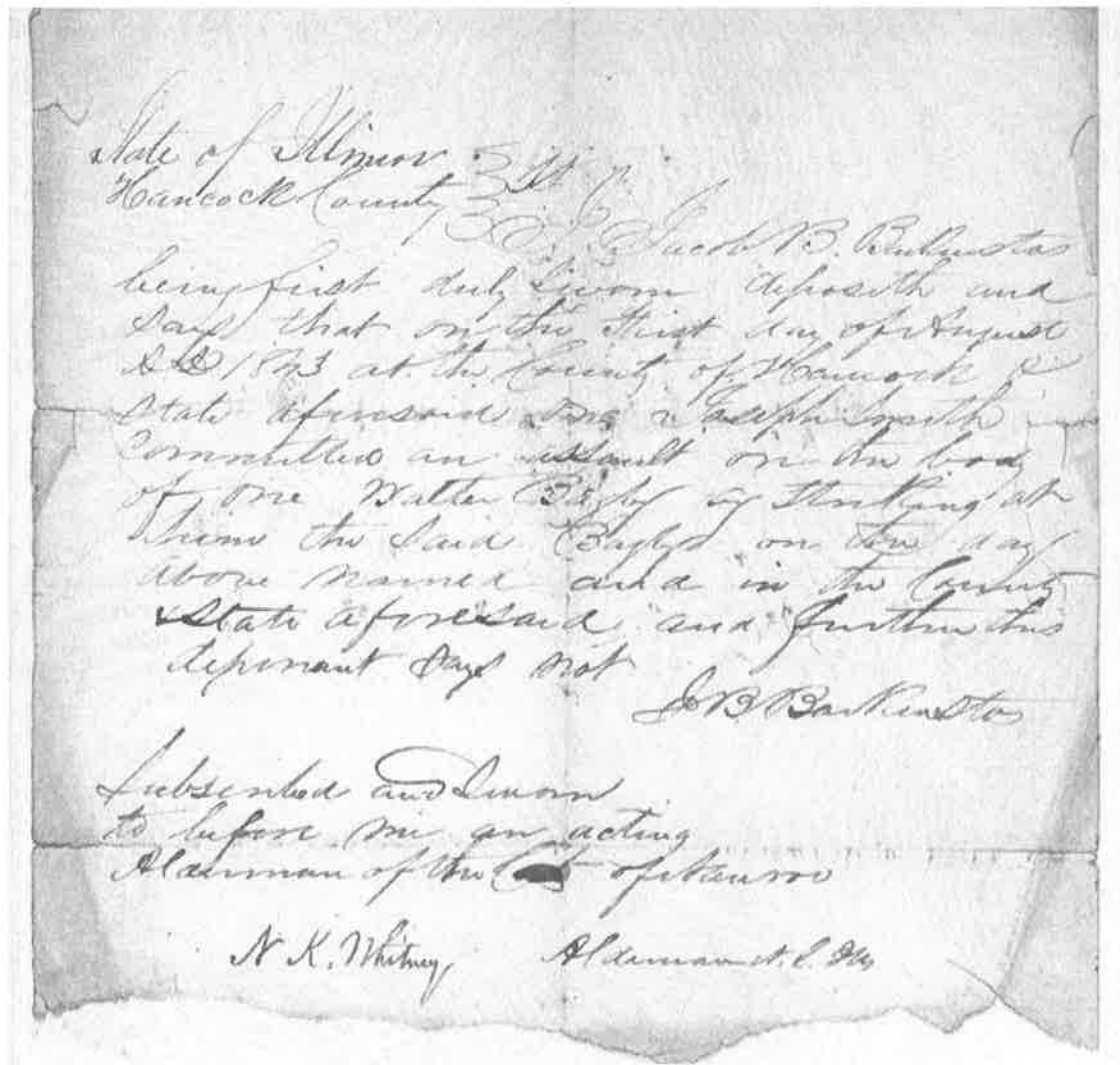 State of Illinois
Hancock County
Jacob B. Backenstos
being first duly sworn deposith and
says that on the First day of August
AD 1843 at the County of Hancock &
State aforesaid one Joseph Smith
Committed an assault on the bod
of one Walter Bagby by Striking at
him the said Bagby on the day
above named and in the County
& State aforesaid and further this
deponant says not
J B Backenstos
Subscribed and Sworn
to before me an acting
Alderman of the of Nauvoo
N K. Whitney, Alderman